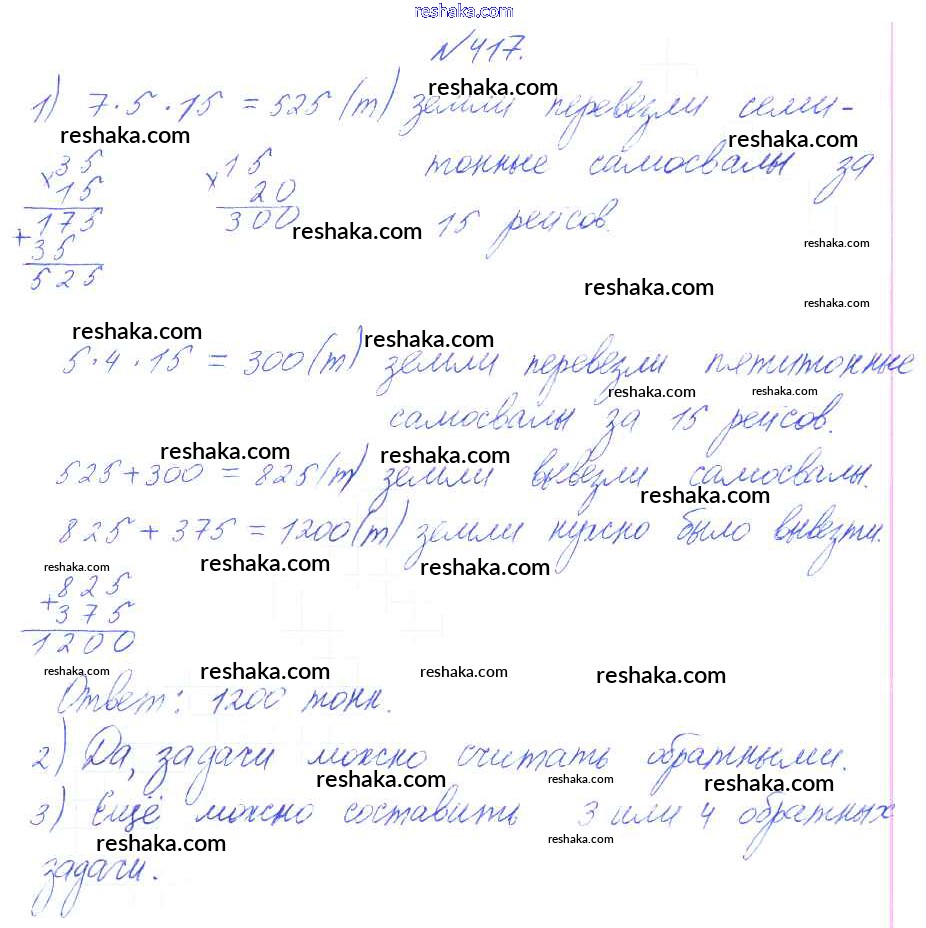 reshaka.com
№417.
reshaka.com
1) 7·5·15 = 525 (т) земли перевезли семи-
reshaka.com reshaka.com
тонные самосвалы за
35
× 15
175
+ 35
525
15
× 20
300
reshaka.com
15 рейсов.
reshaka.com
reshaka.com
reshaka.com
reshaka.com reshaka.com
5·4·15 = 300 (т) земли перевезли пятитонные
reshaka.com reshaka.com
самосвалы за 15 рейсов.
reshaka.com reshaka.com
525+300 = 825 (т) земли вывезли самосвалы.
reshaka.com
825 + 375 = 1200 (т) земли нужно было вывезти.
reshaka.com reshaka.com reshaka.com
825
+ 375
1200
reshaka.com reshaka.com reshaka.com reshaka.com
Ответ: 1200 тонн.
2) Да, задачи можно считать обратными.
reshaka.com reshaka.com reshaka.com
3) Ещё можно составить 3 или 4 обратных
reshaka.com reshaka.com
задачи.